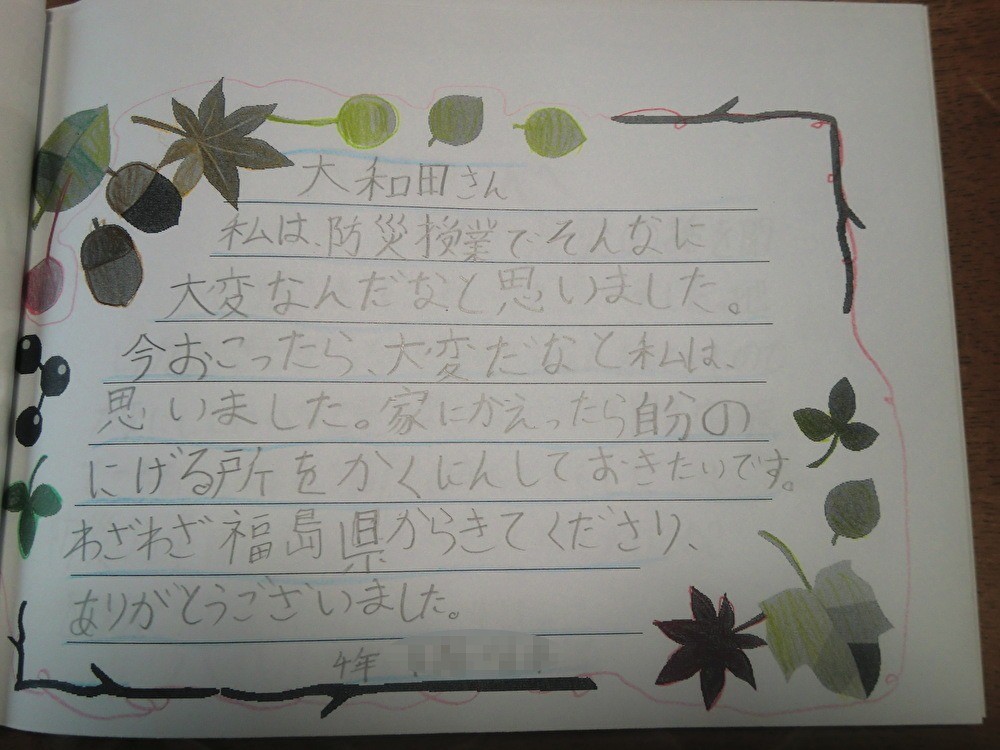 大和田さん
私は、防災授業でそんなに
大変なんだなと思いました。
今おこったら、大変だなと私は、
思いました。家にかえったら自分の
にげる所をかくにんしておきたいです。
わざわざ福島県からきてくださり、
ありがとうございました。
4年